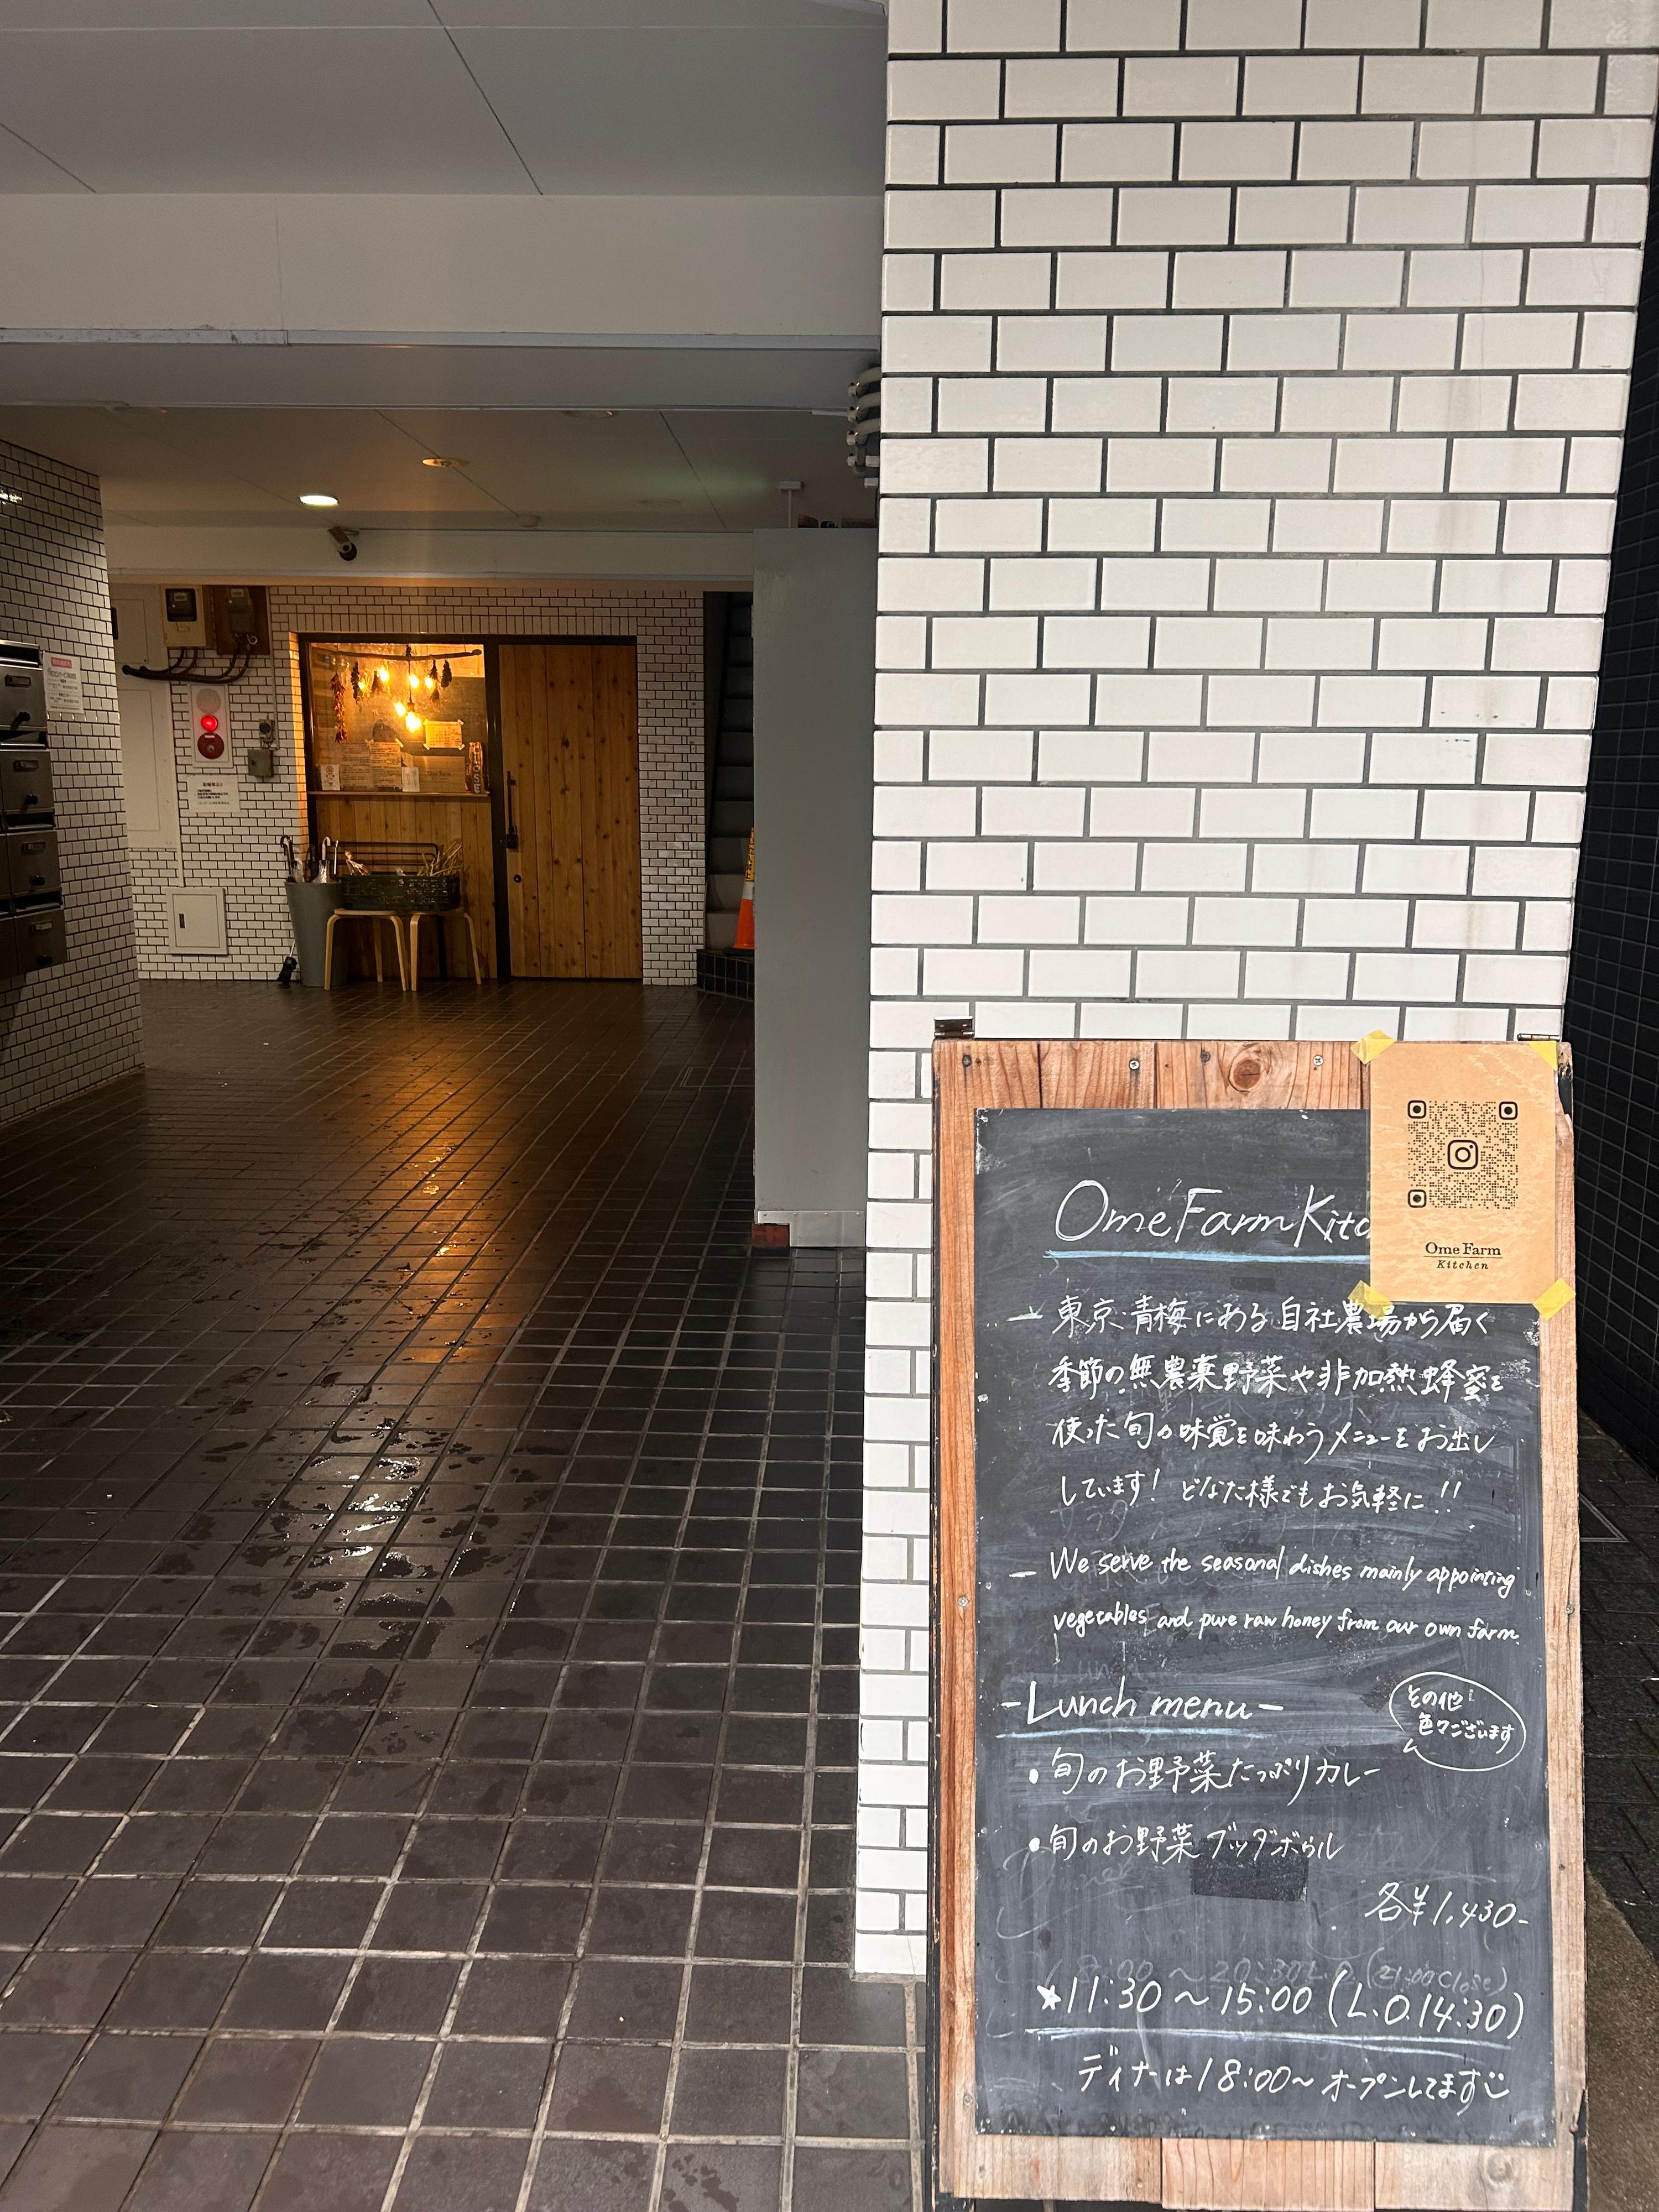 Ome Farm Kitc
Ome Farm
Kitchen
東京・青梅にある自社農場から届く
季節の無農薬野菜や非加熱蜂蜜を
使った旬の味覚を味わうメニューをお出し
しています! どなた様でもお気軽に!!
We serve the seasonal dishes mainly appointing
vegetables and pure raw honey from our own farm.
-Lunch menu-
その他
色々ございます
・旬のお野菜たっぷりカレー
・旬のお野菜ブッダボウル
各¥1,430-
18:00~20:30L.O (21:00Close)
★11:30~15:00 (L.O.14:30)
ディナーは18:00~オープンしてます